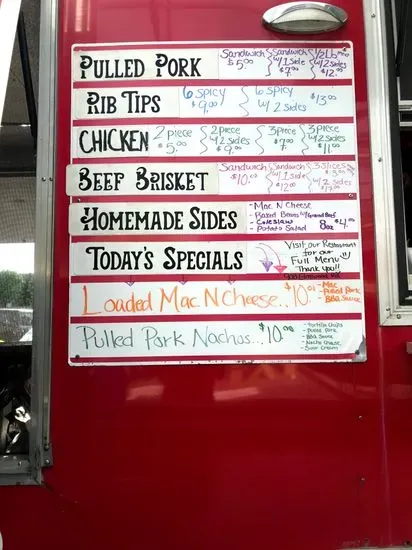 PULLED PORK
Sandwich $5.00
Sandwich w/1 side $7.00
1/2 lb w/2 sides $12.00
RIB TIPS
6 spicy $9.00
6 spicy w/2 sides $13.00
CHICKEN
2 piece $5.00
2 piece w/2 sides $9.00
3 piece $7.00
3 piece w/2 sides $11.00
BEEF BRISKET
Sandwich $10.00
Sandwich w/1 side $12.00
3 Slices
w/2 sides $17.00
HOMEMADE SIDES
- Mac N Cheese
- Baked Beans w/Ground Beef
- Coleslaw
- Potato Salad
8oz $4.00
TODAY'S SPECIALS
Visit our Restaurant
for our
Full Menu
Thank you!!
Loaded Mac N Cheese... $10.00
- Mac
- Pulled Pork
- BBQ Sauce
Pulled Pork Nachos... $10.00
- Tortilla Chips
- Pulled Pork
- BBQ Sauce
- Nacho Cheese
- Sour Cream